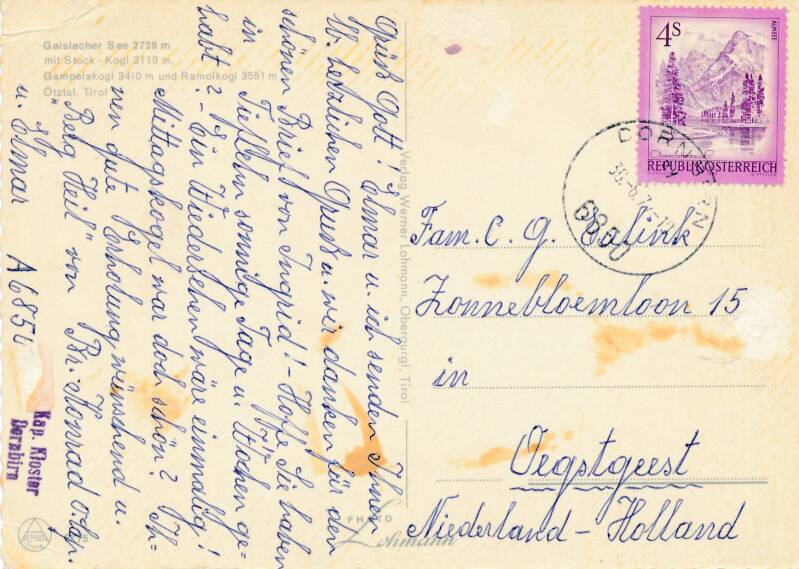 Gaislacher See 2728 m
mit Stock - Kogl 3119 m,
Gampelskogl 3410 m und Ramolkogl 3551 m
Ötztal, Tirol
Grüß Gott! Elmar u. ich senden Ihnen
lb. herzlichen Gruß u. wir danken für den
schönen Brief von Ingrid! - Hoffe Sie haben
in Tieflehn sonnige Tage u. Wochen ge-
habt? - Ein Wiedersehen wäre einmalig!
Mittagskogel war doch schön? Ih-
nen gute Erholung wünschend u.
"Berg Heil" von Br. Konrad
u. Elmar
A 6854
Kap. Kloster
Dornbirn
Verlag Werner Lohmann, Obergurgl, Tirol
PHOTO
Lohmann
4S
ALMSEE
REPUBLIK ÖSTERREICH
DORNBIRN
30.-6.7
6850
Fam. C. G.
Zonnebloemloon 15
in
Oegstgeest
Niederland - Holland